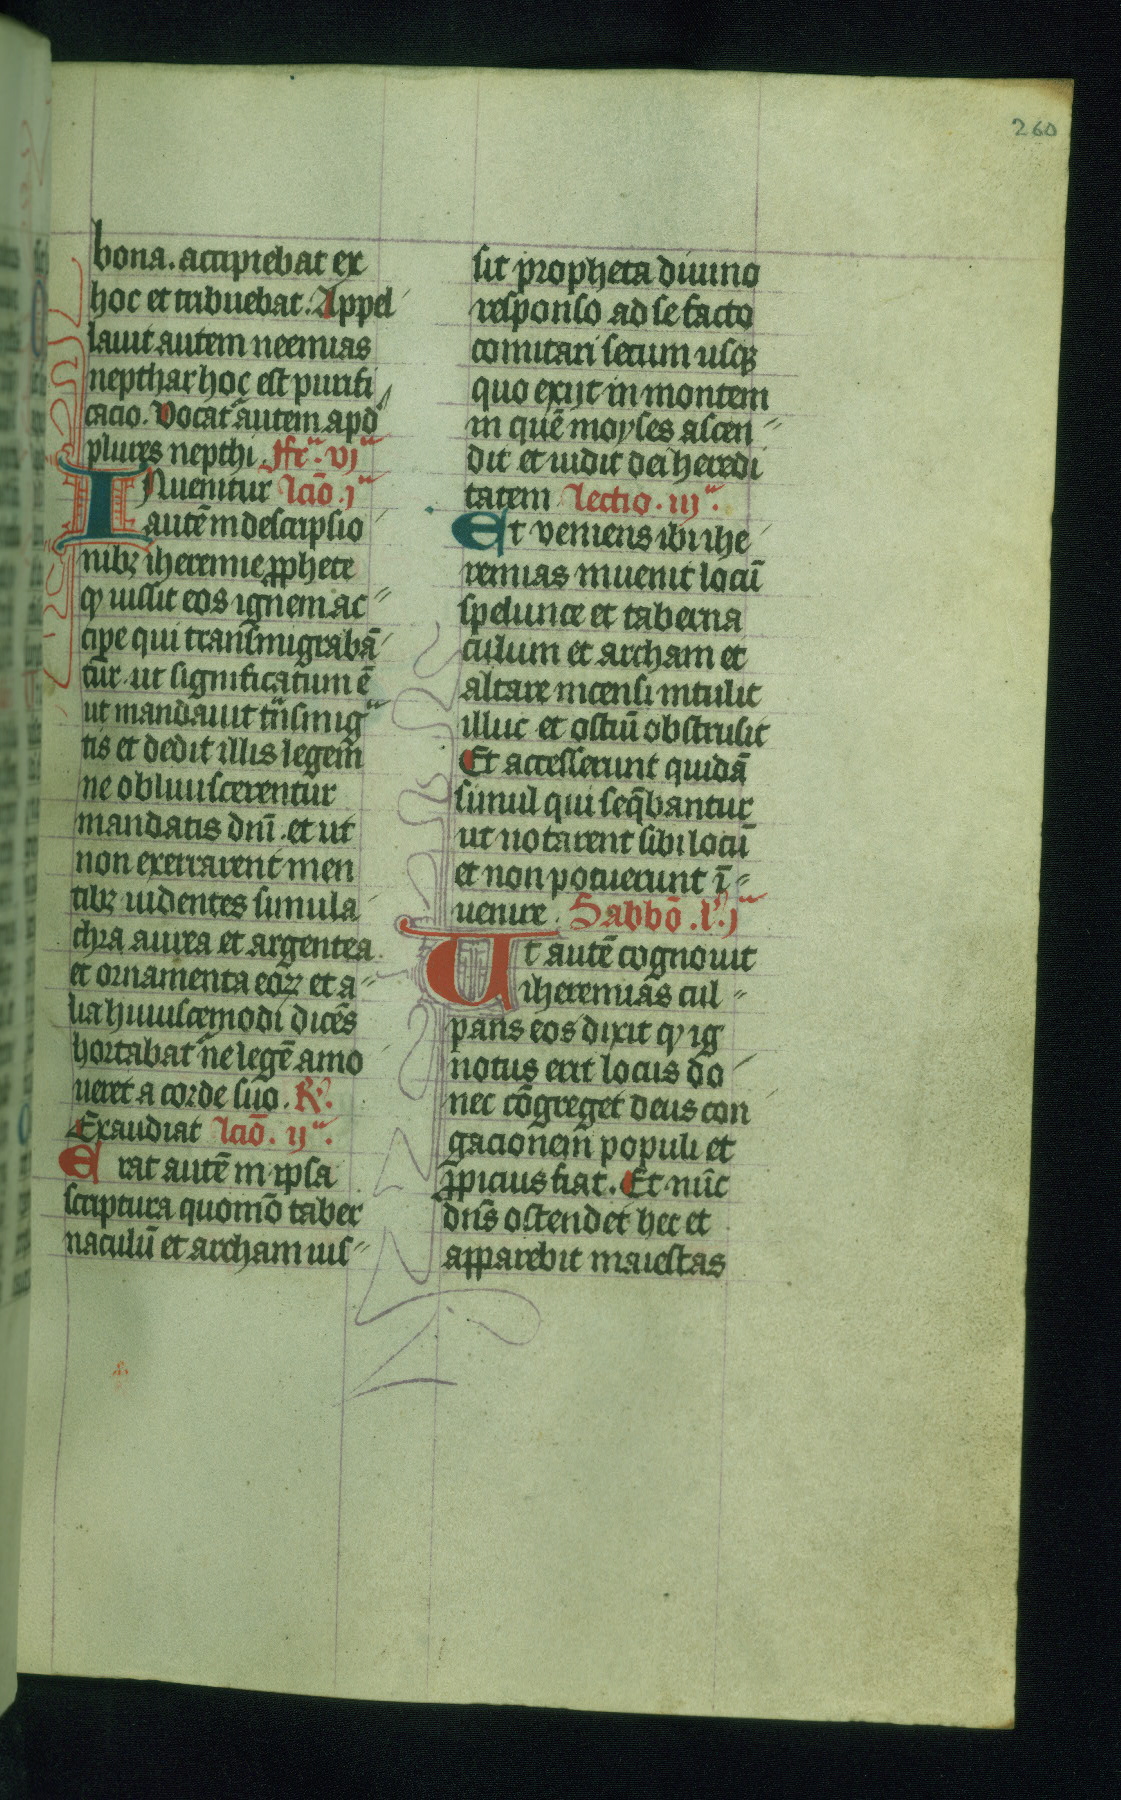 260
bona. accipiebat ex
hoc et tribuebat. Appel
lauit autem neemias
nepthar hoc est purifi
cacio. Vocat᷑ autem apd̛
plures nepthi. ffr̃ᵃ. vjᵗᵃ
INuenitur lc̄io. jᵃ
autē in descripsio
nibꝫ iheremie ꝓphete
ꝙ iussit eos ignem ac
cipe qui transmigrabā
tur. ut significatum ē
ut mandauit tͣnsmigͣ
tis et dedit illis legem
ne obliuiscerentur
mandatis dn̄i. et ut
non exerrarent men
tibꝫ uidentes simula
chra aurea et argentea
et ornamenta eoꝝ et a
lia huiuscemodi dicēs
hortabat᷑ ne legē amo
ueret a corde suo. R̷.
Exaudiat lc̄io. ijᵃ.
Erat autē in ipsa
scriptura quomō taber
naculū et archam ius
sit propheta diuino
responso ad se facto
comitari secum usqꝫ
quo exijt in montem
in quē moyses ascen
dit et uidit dei heredi
tatem lectio. iijᵃ.
Et veniens ibi ihe
remias inuenit locū
spelunce et taberna
culum et archam et
altare incensi intulit
illuc et ostiū obstrusit
Et accesserunt quidā
simul qui seq̄bantur
ut notarent sibi locū
et non potuerunt ī
uenire. Sabbō. l̄. jᵃ
Ut autē cognouit
iheremias cul
pans eos dixit ꝙ ig
notus erit locus do
nec cōgreget deus con
gacionem populi et
ꝓpicius fiat. Et nūc
dn̄s ostendet hec et
apparebit maiestas